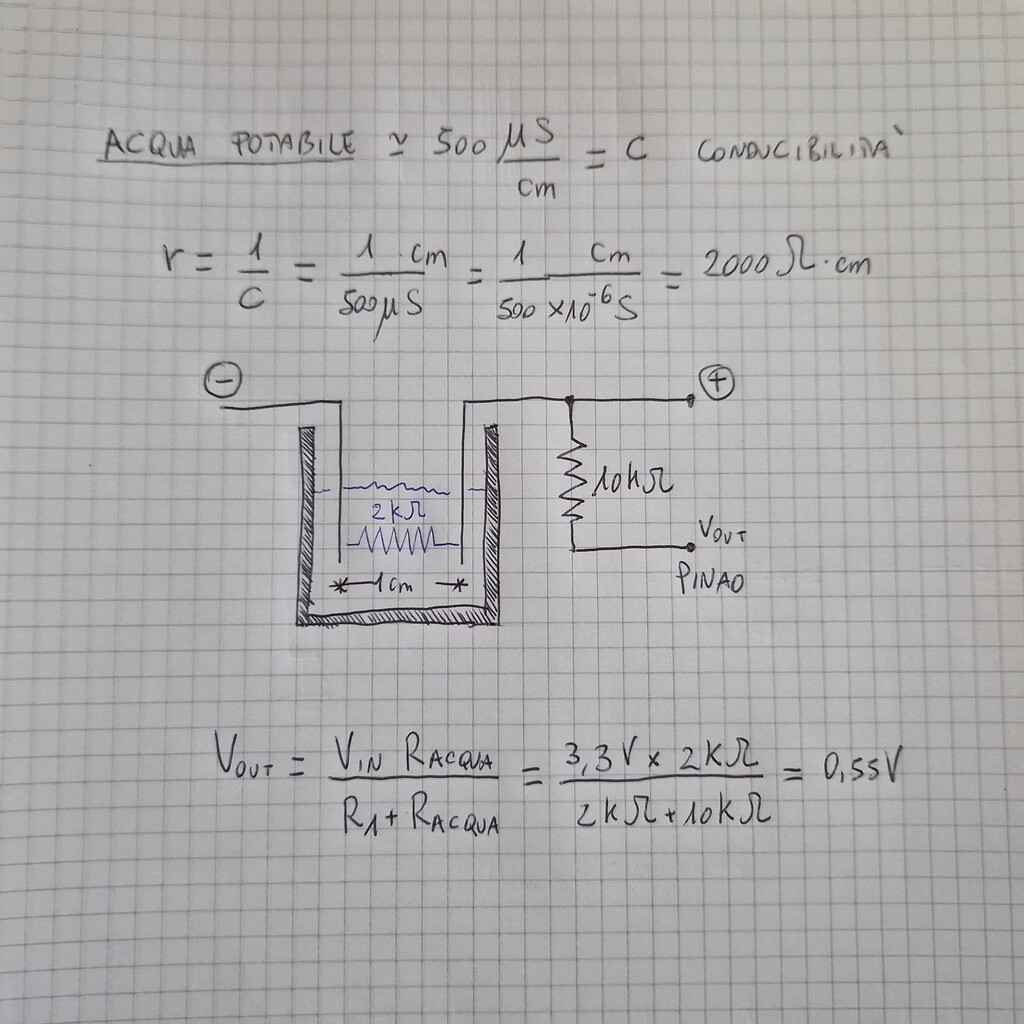 ACQUA POTABILE ≃ 500 μS/cm = C CONDUCIBILITÀ
r = 1/C = 1 · cm/500μS = 1 cm/500 ×10⁻⁶ S = 2000 Ω·cm
⊖ ⊕
2KΩ
10KΩ
1cm
VOUT
PINAO
VOUT = VIN RACQUA/R1+ RACQUA = 3,3V × 2KΩ/2KΩ+10KΩ = 0,55V